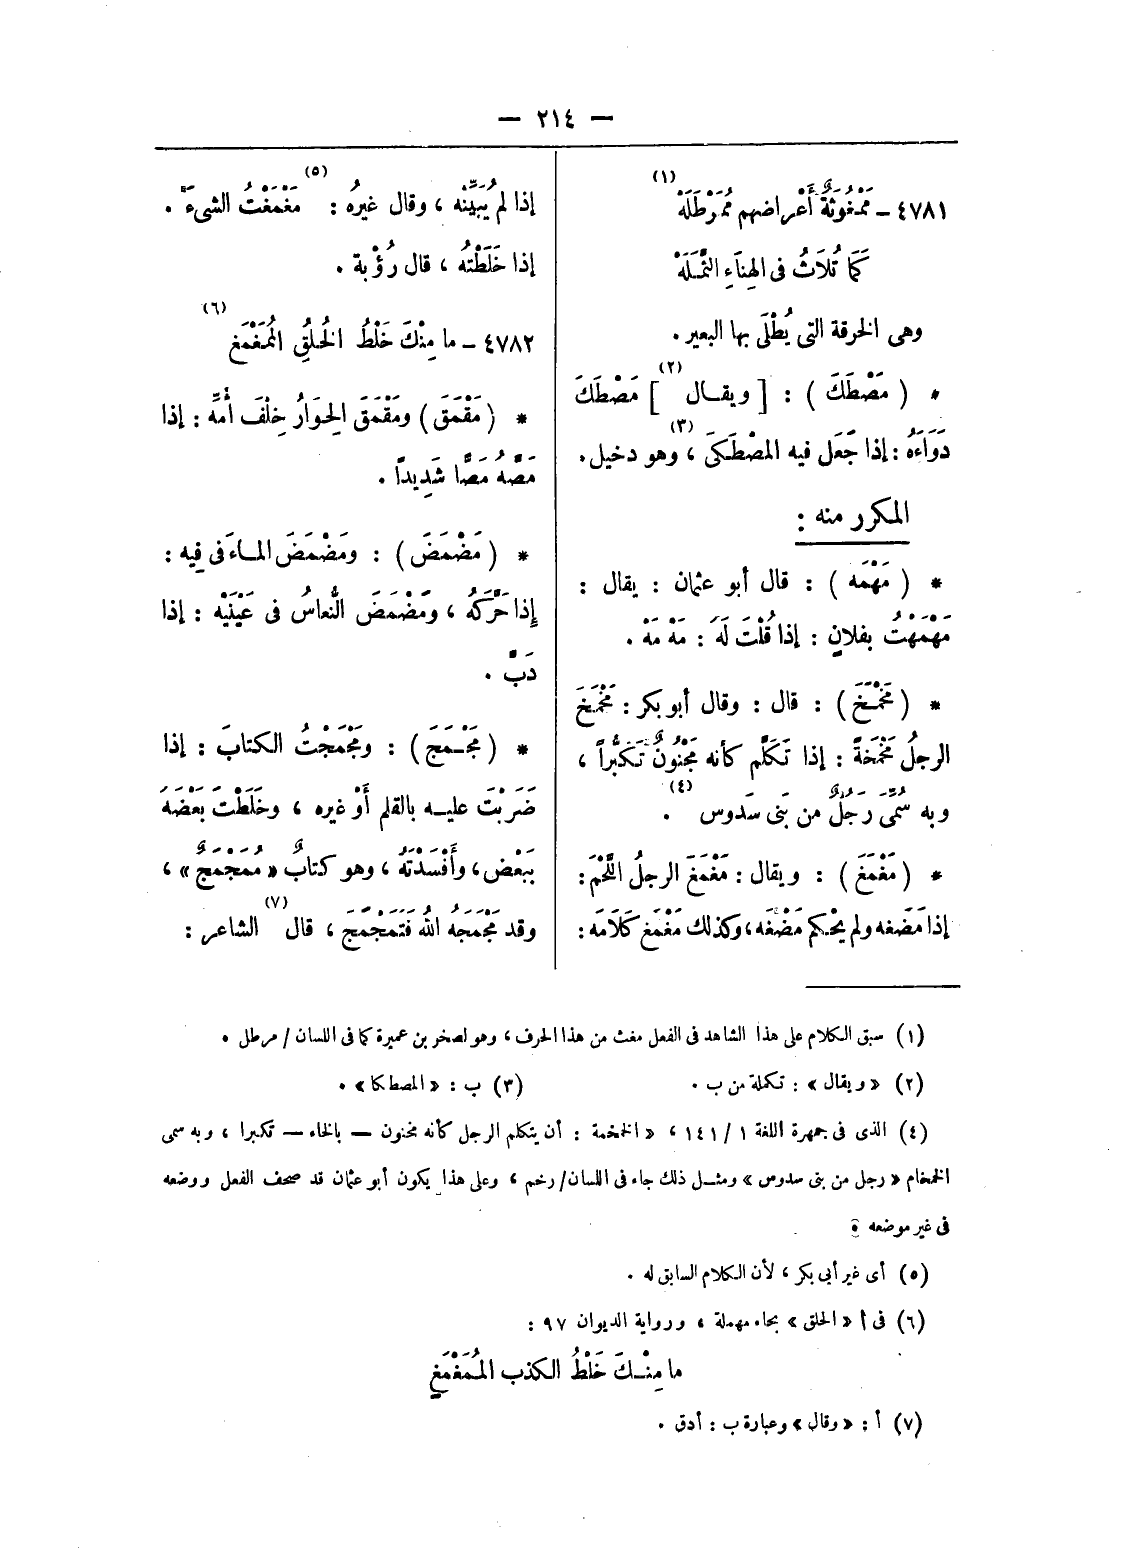 — ٢١٤ —
٤٧٨١ – مَمْغُوثَةٌ أَعْراضهم مُمَرْطَلَهْ (١)
كَمَا تُلَاثُ فى الهِنَاءِ الثَّمَلَهْ
وهى الخرقة التى يُطْلَى بها البعير .
* ( مَصْطَكَ ) : [ ويقـال ] (٢) مَصْطَكَ
دَوَاءَهُ : إذا جَعَل فيه المصْطَكَى (٣) ، وهو دخيل .
المكرر منه :
* ( مَهْمَهَ ) : قال أبو عثمان : يقال :
مَهْمَهْتُ بفلانٍ : إذا قُلْتَ لَهُ : مَهْ مَهْ .
* ( مَخْمَخَ ) : قال : وقال أبو بكر : مَخْمَخَ
الرجلُ مَخْمَخَةً : إذا تَكَلَّم كأنه مَجْنُونٌ تَكَبُّراً ،
وبه سُمِّىَ رَجُلٌ من بَنى سَدوس (٤) .
* ( مَغْمَغَ ) : ويقال : مَغْمَغَ الرجلُ اللَّحْمَ :
إذا مَضَغه ولم يحْكم مَضْغَه ، وكذلك مَغْمَغ كَلَامَه :
إذا لم يُبَيِّنْه ، وقال غيرُه (٥) : مَغْمَغْتُ الشىءَ .
إذا خَلَطْتُه ، قال رُؤْبة .
٤٧٨٢ – ما مِنْكَ خَلْطُ الخُلقِ المُمَغْمَغِ (٦)
* ( مَقْمَقَ ) ومَقْمَقَ الحِوَارُ خِلْفَ أُمِّه : إذا
مَصَّهُ مَصًّا شَدِيداً .
* ( مَضْمَضَ ) : ومَضْمَضَ المـاءَ فى فِيه :
إِذا حَرَّكَهُ ، ومَضْمَضَ النُّعاسُ فى عَيْنَيْه : إذا
دَبَّ .
* ( مَجْـمَجَ ) : ومَجْمَجْتُ الكتابَ : إذا
ضَرَبْتَ عليـه بالقلم أَوْ غيره ، وخَلَطْتَ بَعْضَهُ
بِبَعْض ، وأَفْسَدْتَهُ ، وهو كتابٌ « مُمَجْمَجٌ » ،
وقد مَجْمَجَهُ اللهُ فَتَمَجْمَجَ ، قال (٧) الشاعر :
(١) سبق الكلام على هذا الشاهد فى الفعل مغث من هذا الحرف ، وهو لصخر بن عميرة كما فى اللسان / مرطل .
(٢) « ويقال » : تكملة من ب . (٣) ب : « المصطكا » .
(٤) الذى فى جمهرة اللغة ١ / ١٤١ ، « الخمخمة : أن يتكلم الرجل كأنه مخنون — بالخاء — تكبرا ، وبه سمى
الخمخام « رجل من بنى سدوس » ومثـل ذلك جاء فى اللسان / رخم ، وعلى هذا يكون أبو عثمان قد صحف الفعل ووضعه
فى غير موضعه .
(٥) أى غير أبى بكر ، لأن الكلام السابق له .
(٦) فى أ « الحلق » بحاء مهملة ، ورواية الديوان ٩٧ :
ما مِنْـكَ خَلْطُ الكذب المُمَغْمَغِ
(٧) أ : « وقال » وعبارة ب : أدق .